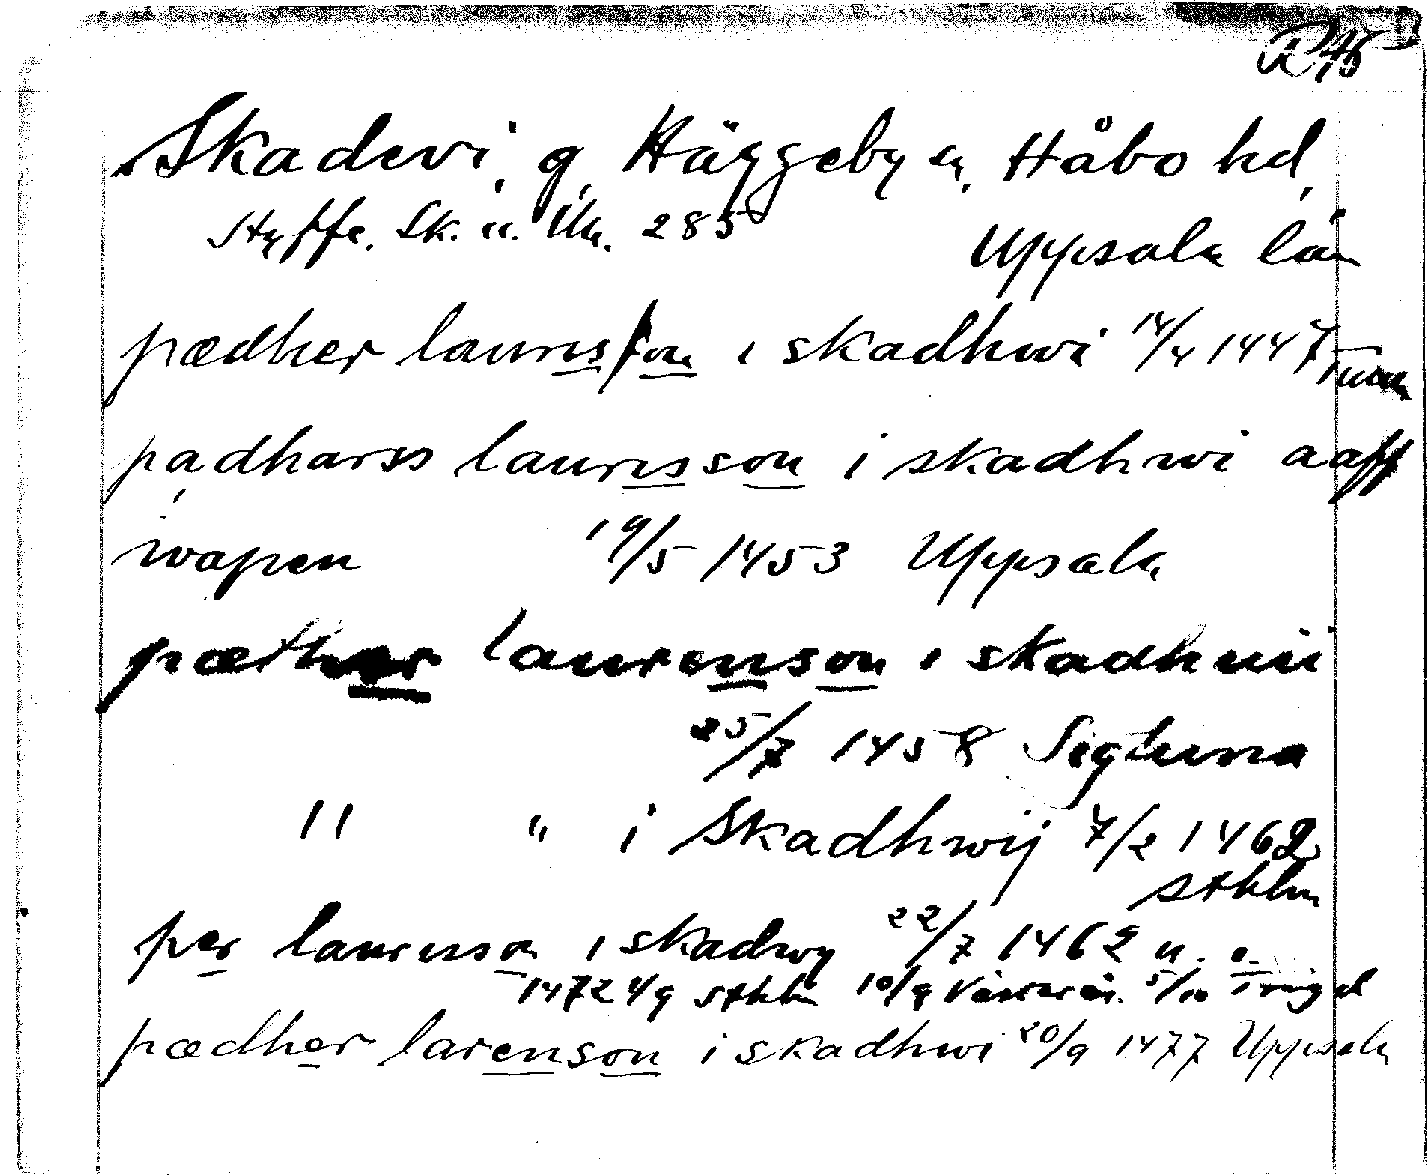 Skadevi, g, Häggeby sn, Håbo hd,
Styffe. Sk. u. Un. 285
Uppsala län
pædher laurisson i skadhwi 14/4 1447
padharss laurisson i skadhwi aaff
wapen 19/5 1453 Uppsala
pæther laurenson i skadhuii
25/7 1458 Sigtuna
" " i Skadhwij 7/2 1462
Sthlm
per laurensson i skadwy 22/7 1462 u. o.
1472 4/9 Sthlm 10/9 5/10
pædher larenson i skadhwi 20/9 1477 Uppsala